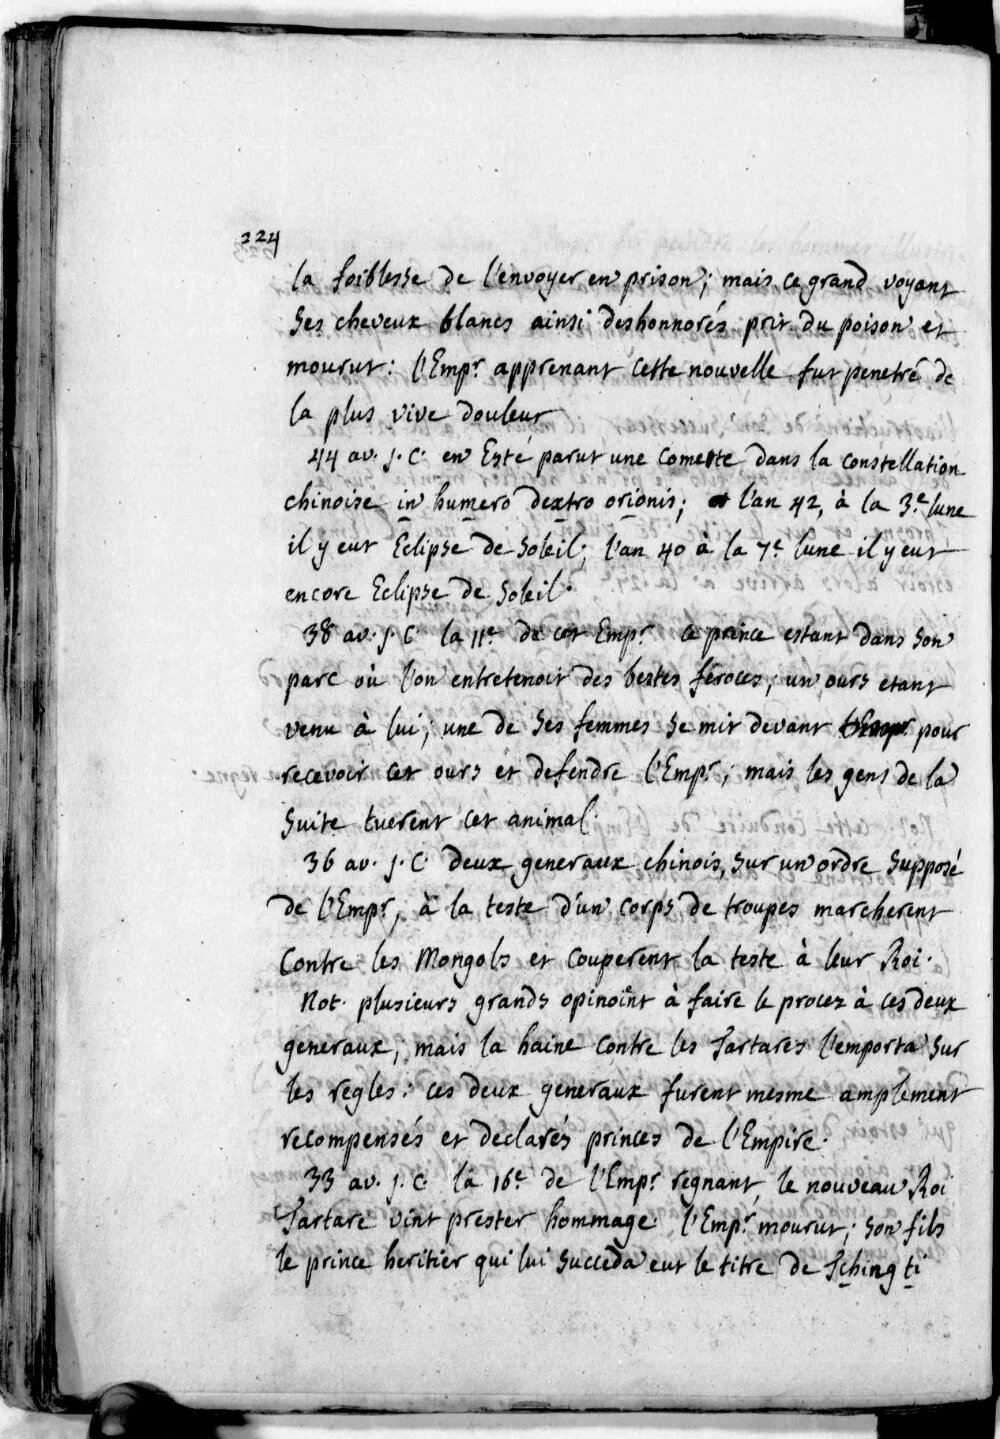 224
la foiblesse de l'envoyer en prison; mais ce grand voyant
ses cheveux blancs ainsi deshonnorés prit du poison et
mourut: l'Empr. apprenant cette nouvelle fut penetré de
la plus vive douleur
44 av. J. C. en Esté parut une comette dans la constellation
chinoise in humero dextro orionis; l'an 42, à la 3e. lune
il y eut Eclipse de Soleil; l'an 40 à la 7e. lune il y eut
encore Eclipse de Soleil.
38 av. J. C. la 11e. de cet Empr. ce prince estant dans son
parc où l'on entretenoit des bestes féroces; un ours etant
venu à lui; une de ses femmes se mit devant pour
recevoir cet ours et defendre l'Empr.; mais les gens de la
suite tuerent cet animal.
36 av. J. C. deux generaux chinois, sur un ordre supposé
de l'Empr., à la teste d'un corps de troupes marcherent
contre les Mongols et couperent la teste à leur Roi.
Not. plusieurs grands opinoint à faire le procez à ces deux
generaux; mais la haine contre les Tartares l'emporta sur
les regles: ces deux generaux furent mesme amplement
recompensés et declarés princes de l'Empire.
33 av. J. C. la 16e. de l'Empr. regnant, le nouveau Roi
Tartare vint prester hommage. l'Empr. mourut; son fils
le prince heritier qui lui succeda eut le titre de Tching ti